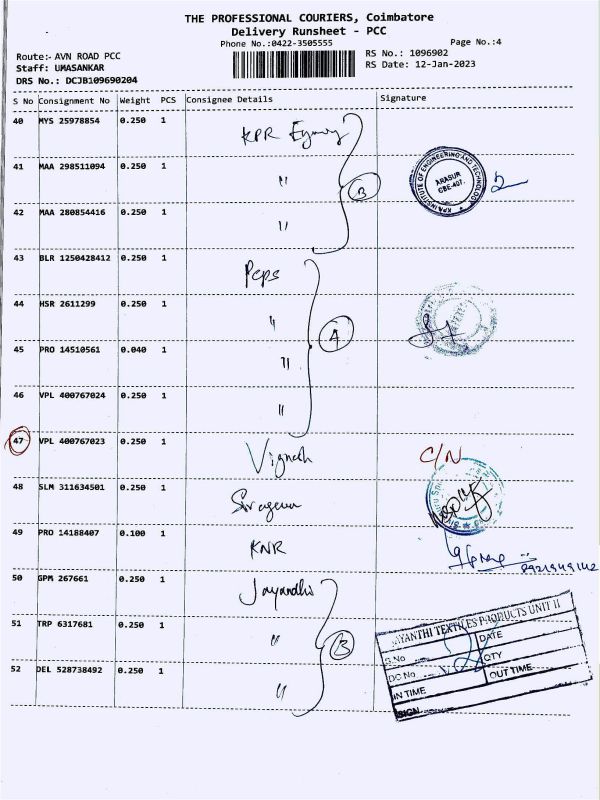 THE PROFESSIONAL COURIERS, Coimbatore
Delivery Runsheet - PCC
Phone No.:0422-3505555
Page No.:4
Route:- AVN ROAD PCC
RS No.: 1096902
Staff: UMASANKAR
RS Date: 12-Jan-2023
DRS No.: DCJB109690204
S No Consignment No Weight PCS Consignee Details Signature
40 MYS 25978854 0.250 1 KPR
41 MAA 298511094 0.250 1 "
KPR INSTITUTE OF ENGINEERING AND TECHNOLOGY
ARASUR
CBE-407.
3
42 MAA 280854416 0.250 1 "
43 BLR 1250428412 0.250 1 Peps
44 HSR 2611299 0.250 1 "
4
45 PRO 14510561 0.040 1 "
46 VPL 400767024 0.250 1 "
47 VPL 400767023 0.250 1 Vignesh C/N
48 SLM 311634501 0.250 1
49 PRO 14188407 0.100 1 KNR
8921949142
50 GPM 267661 0.250 1
51 TRP 6317681 0.250 1 "
3
52 DEL 528738492 0.250 1 "
JAYANTHI TEXTILES PRODUCTS UNIT II
S.No DATE
DC No QTY
IN TIME OUT TIME
SIGN